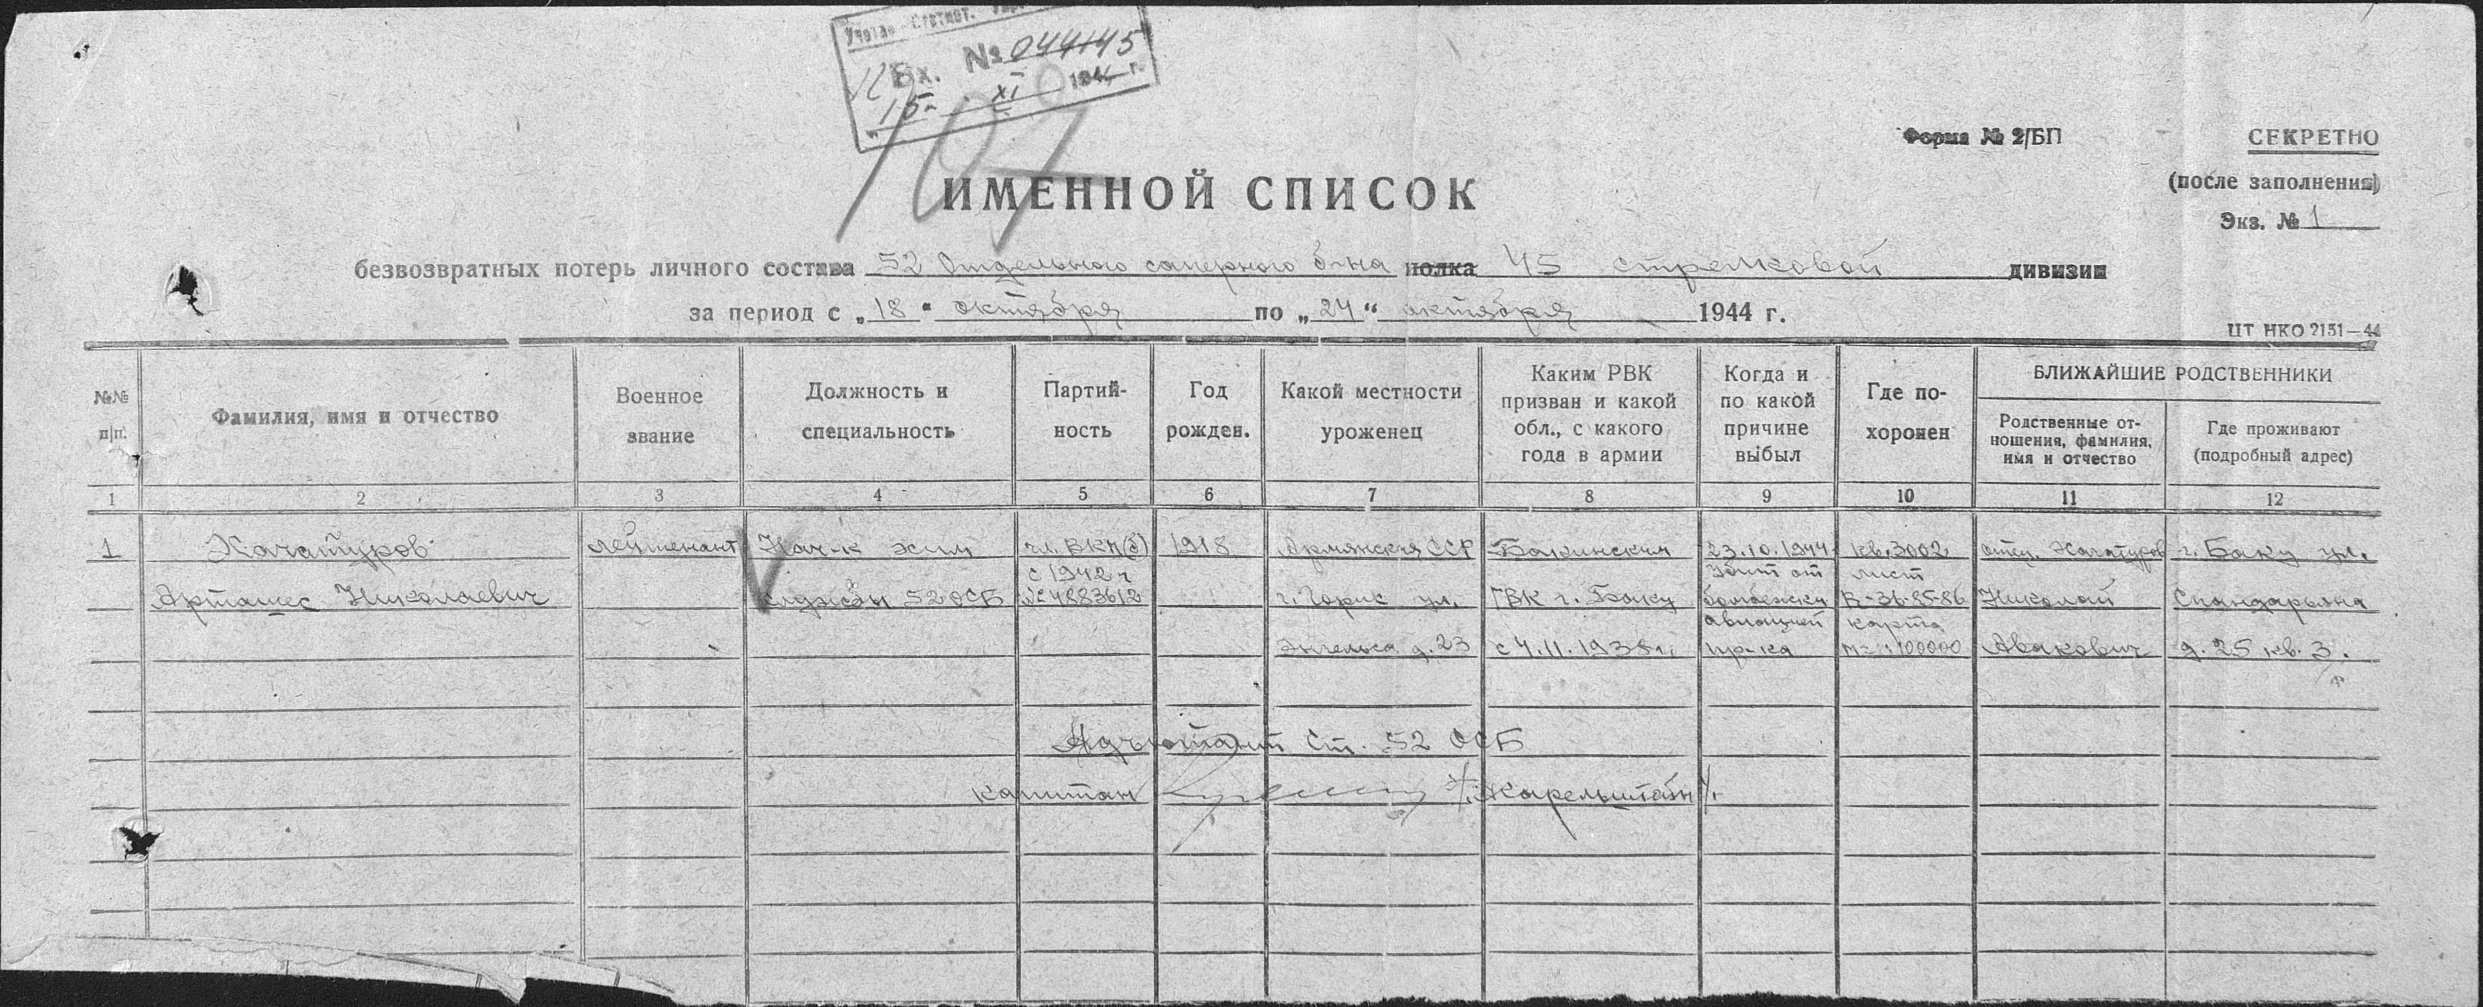 Учетно Статист.
Вх. № 044145
"15" XI 1944 г.
107
Форма № 2/БП
СЕКРЕТНО
(после заполнения)
Экз. № 1
ИМЕННОЙ СПИСОК
безвозвратных потерь личного состава 52 Отдельного саперного б-на полка 45 стрелковой дивизии
за период с „18“ октября по „24“ октября 1944 г.
ЦТ НКО 2151—44
№№ п/п.
Фамилия, имя и отчество
Военное звание
Должность и специальность
Партий-
ность
Год рожден.
Какой местности уроженец
Каким РВК
призван и какой
обл., с какого
года в армии
Когда и
по какой
причине
выбыл
Где по-
хоронен
БЛИЖАЙШИЕ РОДСТВЕННИКИ
Родственные от-
ношения, фамилия,
имя и отчество
Где проживают
(подробный адрес)
1 2 3 4 5 6 7 8 9 10 11 12
1 Хачатуров лейтенант Нач-к хим чл. ВКП(б) 1918 Армянская ССР Бакинским 23.10.1944 кв. 3002 отец Хачатуров г. Баку ул.
с 1942 г убит от лист
Арташес Николаевич службы 52 ОСБ № 4883612 г. Горис ул. ГВК г. Баку бомбежки R-36-85-86 Николай Спандарьяна
авиацией карта
Энгельса д. 23 с 4.11.1938 г. пр-ка м-1:100000 Авакович д. 25 кв. 3.
Адъютант ст. 52 ОСБ
капитан /Карельштейн/